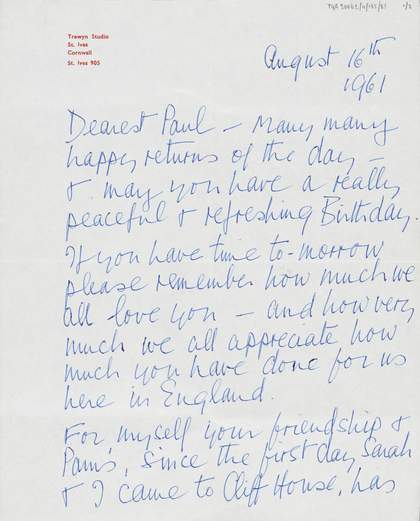 Trewyn Studio
St. Ives
Cornwall
St. Ives 905
August 16th
1961
Dearest Paul – Many many
happy returns of the day –
& may you have a really
peaceful & refreshing Birthday.
If you have time to-morrow
please remember how much we
all love you – and how very
much we all appreciate how
much you have done for us
here in England.
For myself your friendship &
Pam's, since the first day Sarah
& I came to Cliff House, has